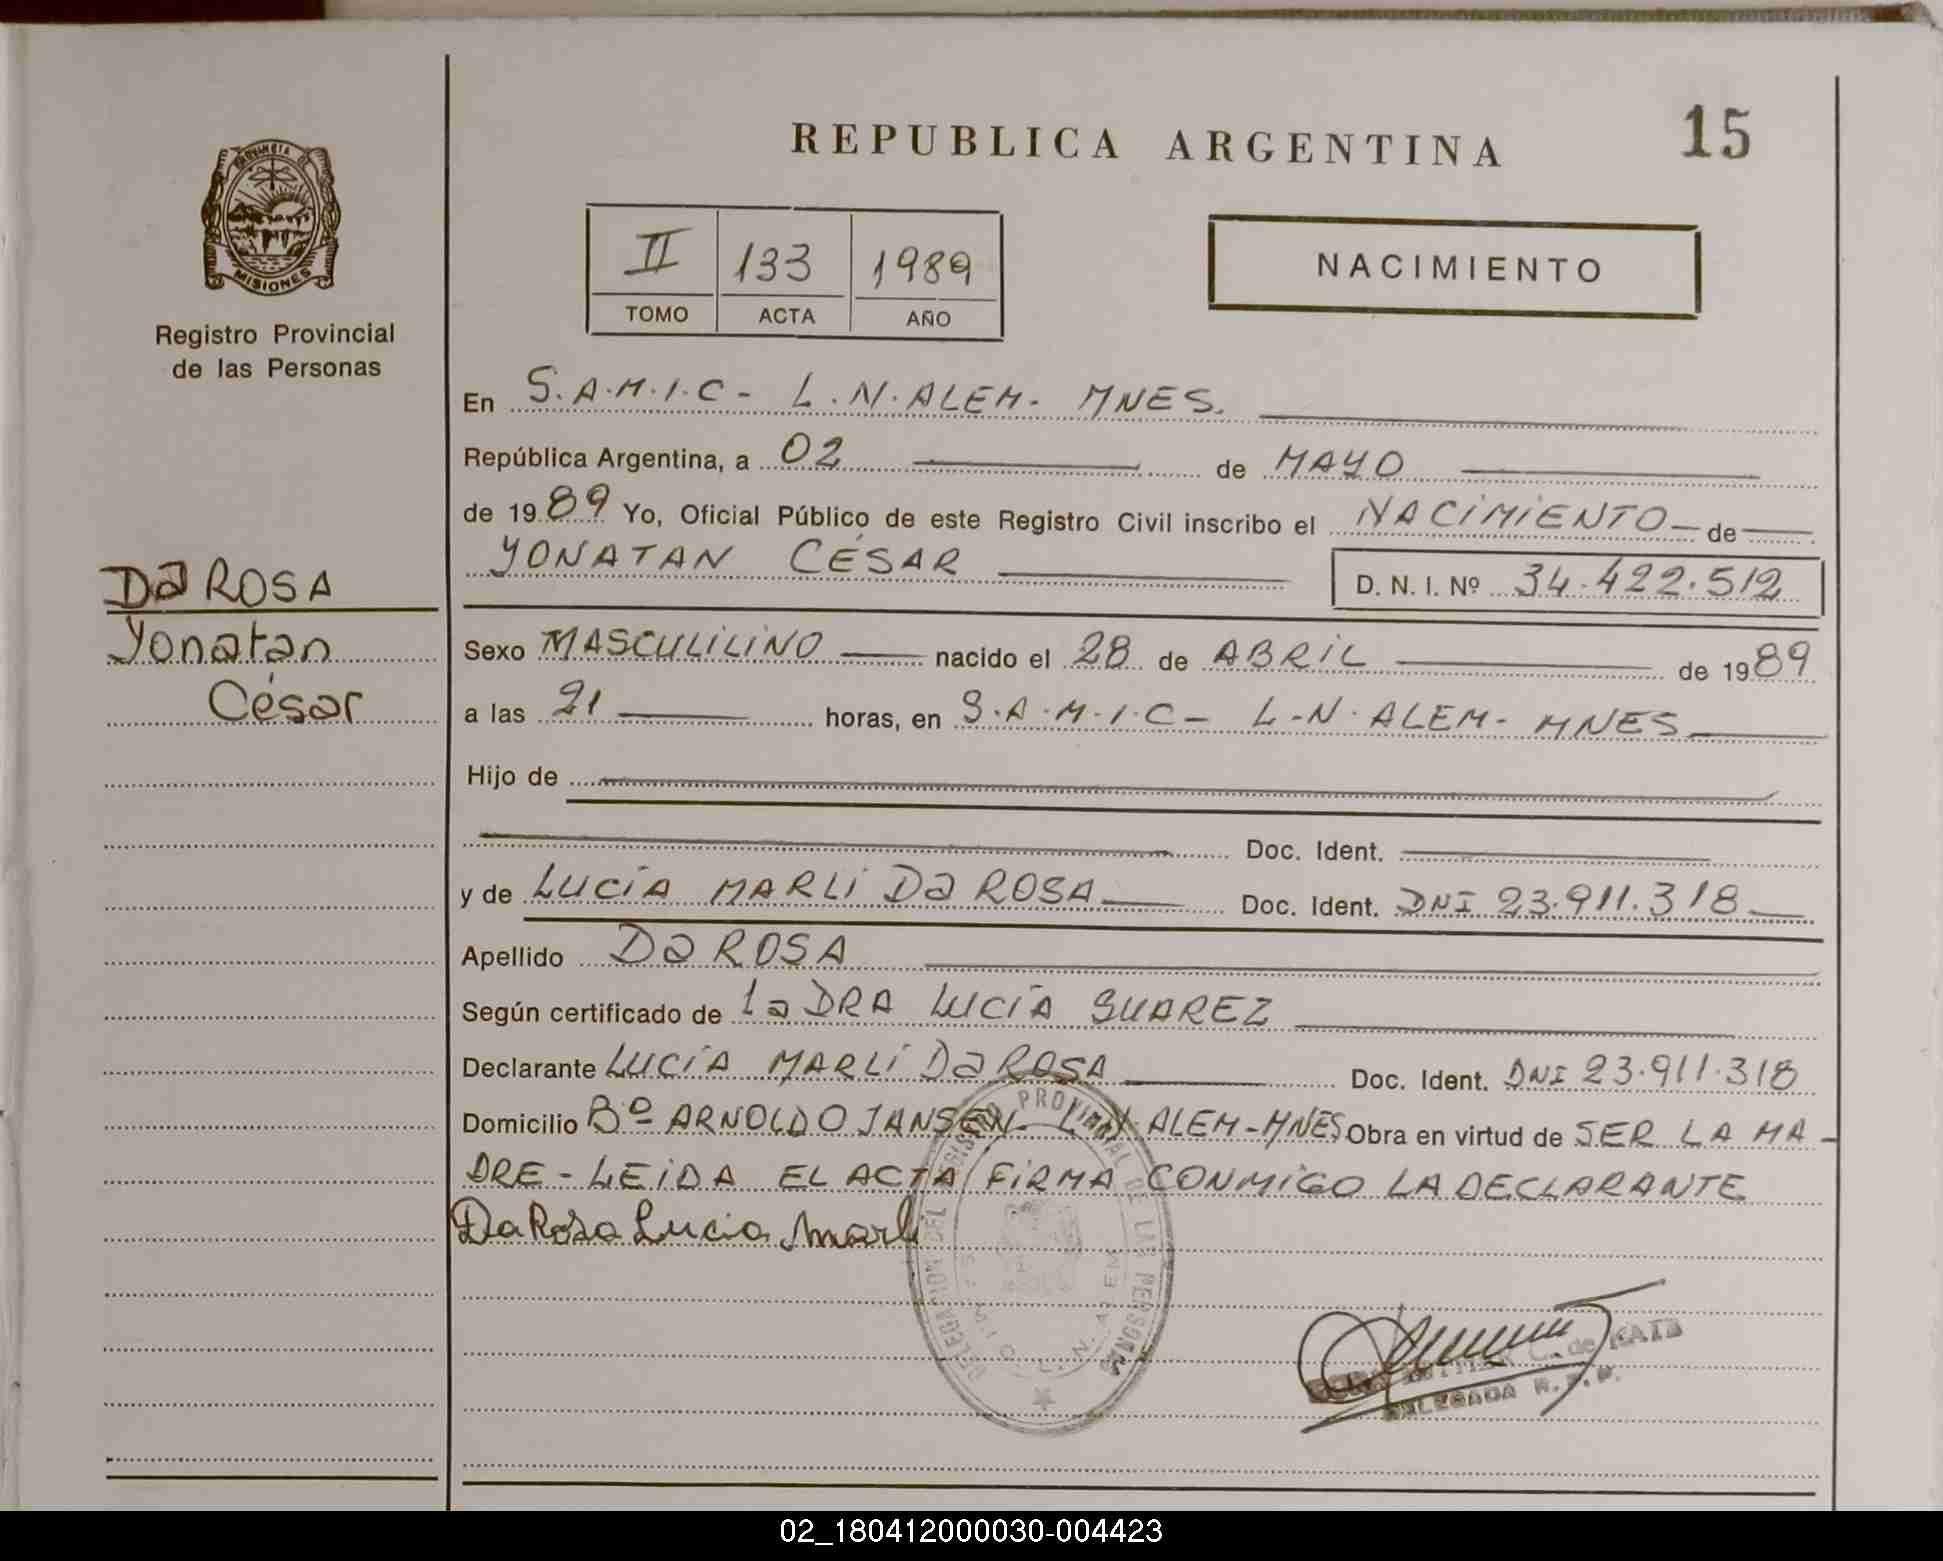 REPUBLICA ARGENTINA
15
PROVINCIA DE
MISIONES
Registro Provincial
de las Personas
II 133 1989
TOMO ACTA AÑO
NACIMIENTO
En S.A.M.I.C - L.N.ALEM - MNES.
República Argentina, a 02 de MAYO
de 1989 Yo, Oficial Público de este Registro Civil inscribo el NACIMIENTO de
YONATAN CÉSAR D. N. I. Nº 34.422.512
Da ROSA
Yonatan
César
Sexo MASCULILINO nacido el 28 de ABRIL de 1989
a las 21 horas, en S.A.M.I.C - L-N.ALEM - MNES
Hijo de
Doc. Ident.
y de LUCÍA MARLI Da ROSA Doc. Ident. DNI 23.911.318
Apellido Da ROSA
Según certificado de La DRA LUCÍA SUAREZ
Declarante LUCÍA MARLI Da ROSA Doc. Ident. DNI 23.911.318
Domicilio Bº ARNOLDO JANSEN - L.N. ALEM - MNES Obra en virtud de SER LA MA-
DRE - LEIDA EL ACTA FIRMA CONMIGO LA DECLARANTE
Da Rosa Lucia Marli
DELEGACION DEL REGISTRO PROVINCIAL DE LAS PERSONAS
L. N. ALEM
C. de KATZ
DELEGADA R. P. P.
02_180412000030-004423